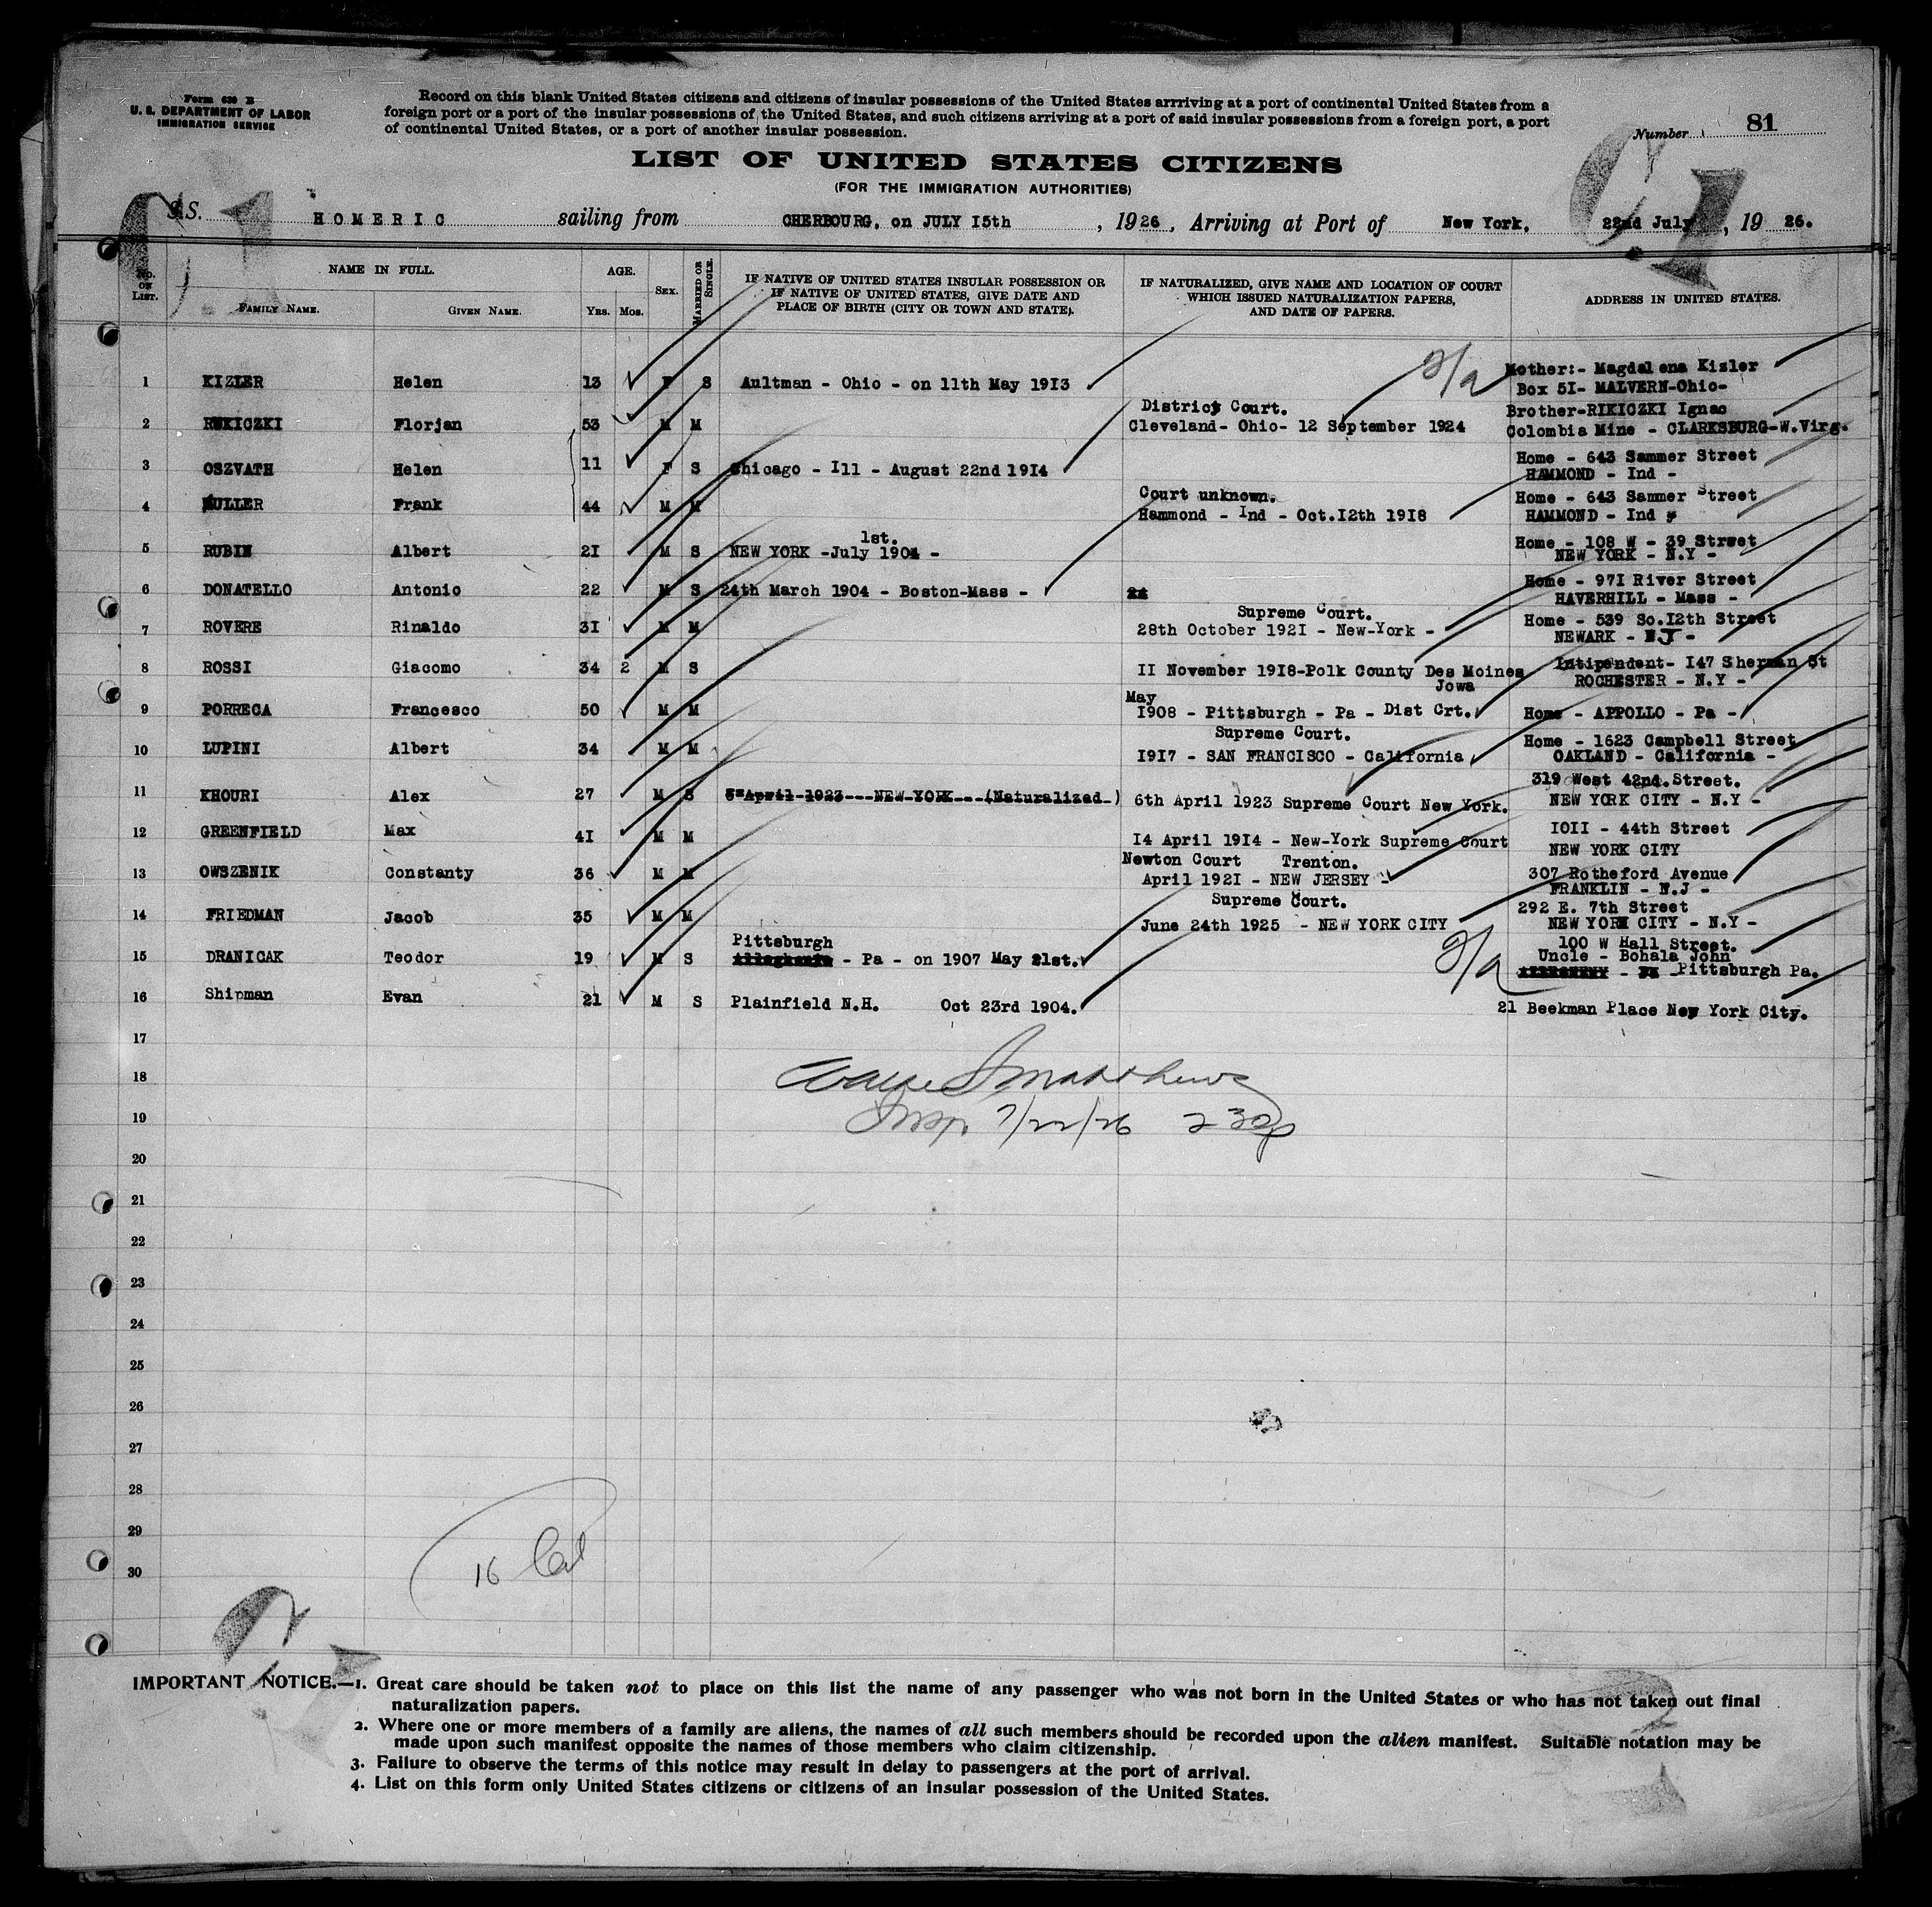 Form 630 B
U. S. DEPARTMENT OF LABOR
IMMIGRATION SERVICE
Record on this blank United States citizens and citizens of insular possessions of the United States arrriving at a port of continental United States from a
foreign port or a port of the insular possessions of the United States, and such citizens arriving at a port of said insular possessions from a foreign port, a port
of continental United States, or a port of another insular possession.
Number 81
LIST OF UNITED STATES CITIZENS
(FOR THE IMMIGRATION AUTHORITIES)
S.S. HOMERIC sailing from CHERBOURG, on JULY I5th, 1926, Arriving at Port of New York, 22nd July, 19 26.
No. ON LIST.
NAME IN FULL.
FAMILY NAME. GIVEN NAME.
AGE.
Yrs. Mos.
SEX.
MARRIED OR SINGLE.
IF NATIVE OF UNITED STATES INSULAR POSSESSION OR
IF NATIVE OF UNITED STATES, GIVE DATE AND
PLACE OF BIRTH (CITY OR TOWN AND STATE).
IF NATURALIZED, GIVE NAME AND LOCATION OF COURT
WHICH ISSUED NATURALIZATION PAPERS,
AND DATE OF PAPERS.
ADDRESS IN UNITED STATES.
Mother:- Magdalena Kizler
1 KIZLER Helen 13 F S Aultman - Ohio - on 11th May 19I3 Box 5I- MALVERN-Ohio-
District Court. Brother-RIKICZKI Ignac
2 RUKICZKI Florjan 53 M M Cleveland- Ohio- 12 September 1924 Colombia Mine - CLARKSBURG-W.Virg.
Home - 643 Sammer Street
3 OSZVATH Helen 11 F S Chicago - Ill - August 22nd 19I4 HAMMOND - Ind -
Court unknown. Home - 643 Sammer Street
4 MULLER Frank 44 M M Hammond - Ind - Oct.I2th 19I8 HAMMOND - Ind
1st. Home - 108 W - 39 Street
5 RUBIN Albert 2I M S NEW YORK -July 1904 - NEW YORK - N.Y -
Home - 97I River Street
6 DONATELLO Antonio 22 M S 24th March 1904 - Boston-Mass - HAVERHILL - Mass -
Supreme Court. Home - 539 So.I2th Street
7 ROVERE Rinaldo 3I M M 28th October 192I - New-York - NEWARK - NJ -
8 ROSSI Giacomo 34 2 M S II November 19I8-Polk County Des Moines Intipendent- I47 Sherman St
Jowa ROCHESTER - N.Y -
May
9 PORRECA Francesco 50 M M I908 - Pittsburgh - Pa - Dist Crt. Home - APPOLLO - Pa -
Supreme Court. Home - 1623 Campbell Street
10 LUPINI Albert 34 M M I9I7 - SAN FRANCISCO - California OAKLAND - California -
319 West 42nd.Street.
11 KHOURI Alex 27 M S 6 April 1923---NEW-YORK---(Naturalized-) 6th April 1923 Supreme Court New York. NEW YORK CITY - N.Y -
12 GREENFIELD Max 4I M M I4 April 19I4 - New-York Supreme Court IOII - 44th Street
NEW YORK CITY
Newton Court Trenton.
13 OWSZENIK Constanty 36 M M April 192I - NEW JERSEY - 307 Rotheford Avenue
FRANKLIN - N.J -
Supreme Court. 292 E. 7th Street
14 FRIEDMAN Jacob 35 M M June 24th 1925 - NEW YORK CITY NEW YORK CITY - N.Y -
Pittsburgh 100 W Hall Street.
15 DRANICAK Teodor 19 M S - Pa - on 1907 May 21st. Uncle - Bohala John
Pittsburgh Pa.
16 Shipman Evan 21 M S Plainfield N.H. Oct 23rd 1904. 21 Beekman Place New York City.
17
18
19 Insp. 7/22/26 2 30p
20
21
22
23
24
25
26
27
28
29
30
16
IMPORTANT NOTICE.—1. Great care should be taken not to place on this list the name of any passenger who was not born in the United States or who has not taken out final
naturalization papers.
2. Where one or more members of a family are aliens, the names of all such members should be recorded upon the alien manifest. Suitable notation may be
made upon such manifest opposite the names of those members who claim citizenship.
3. Failure to observe the terms of this notice may result in delay to passengers at the port of arrival.
4. List on this form only United States citizens or citizens of an insular possession of the United States.